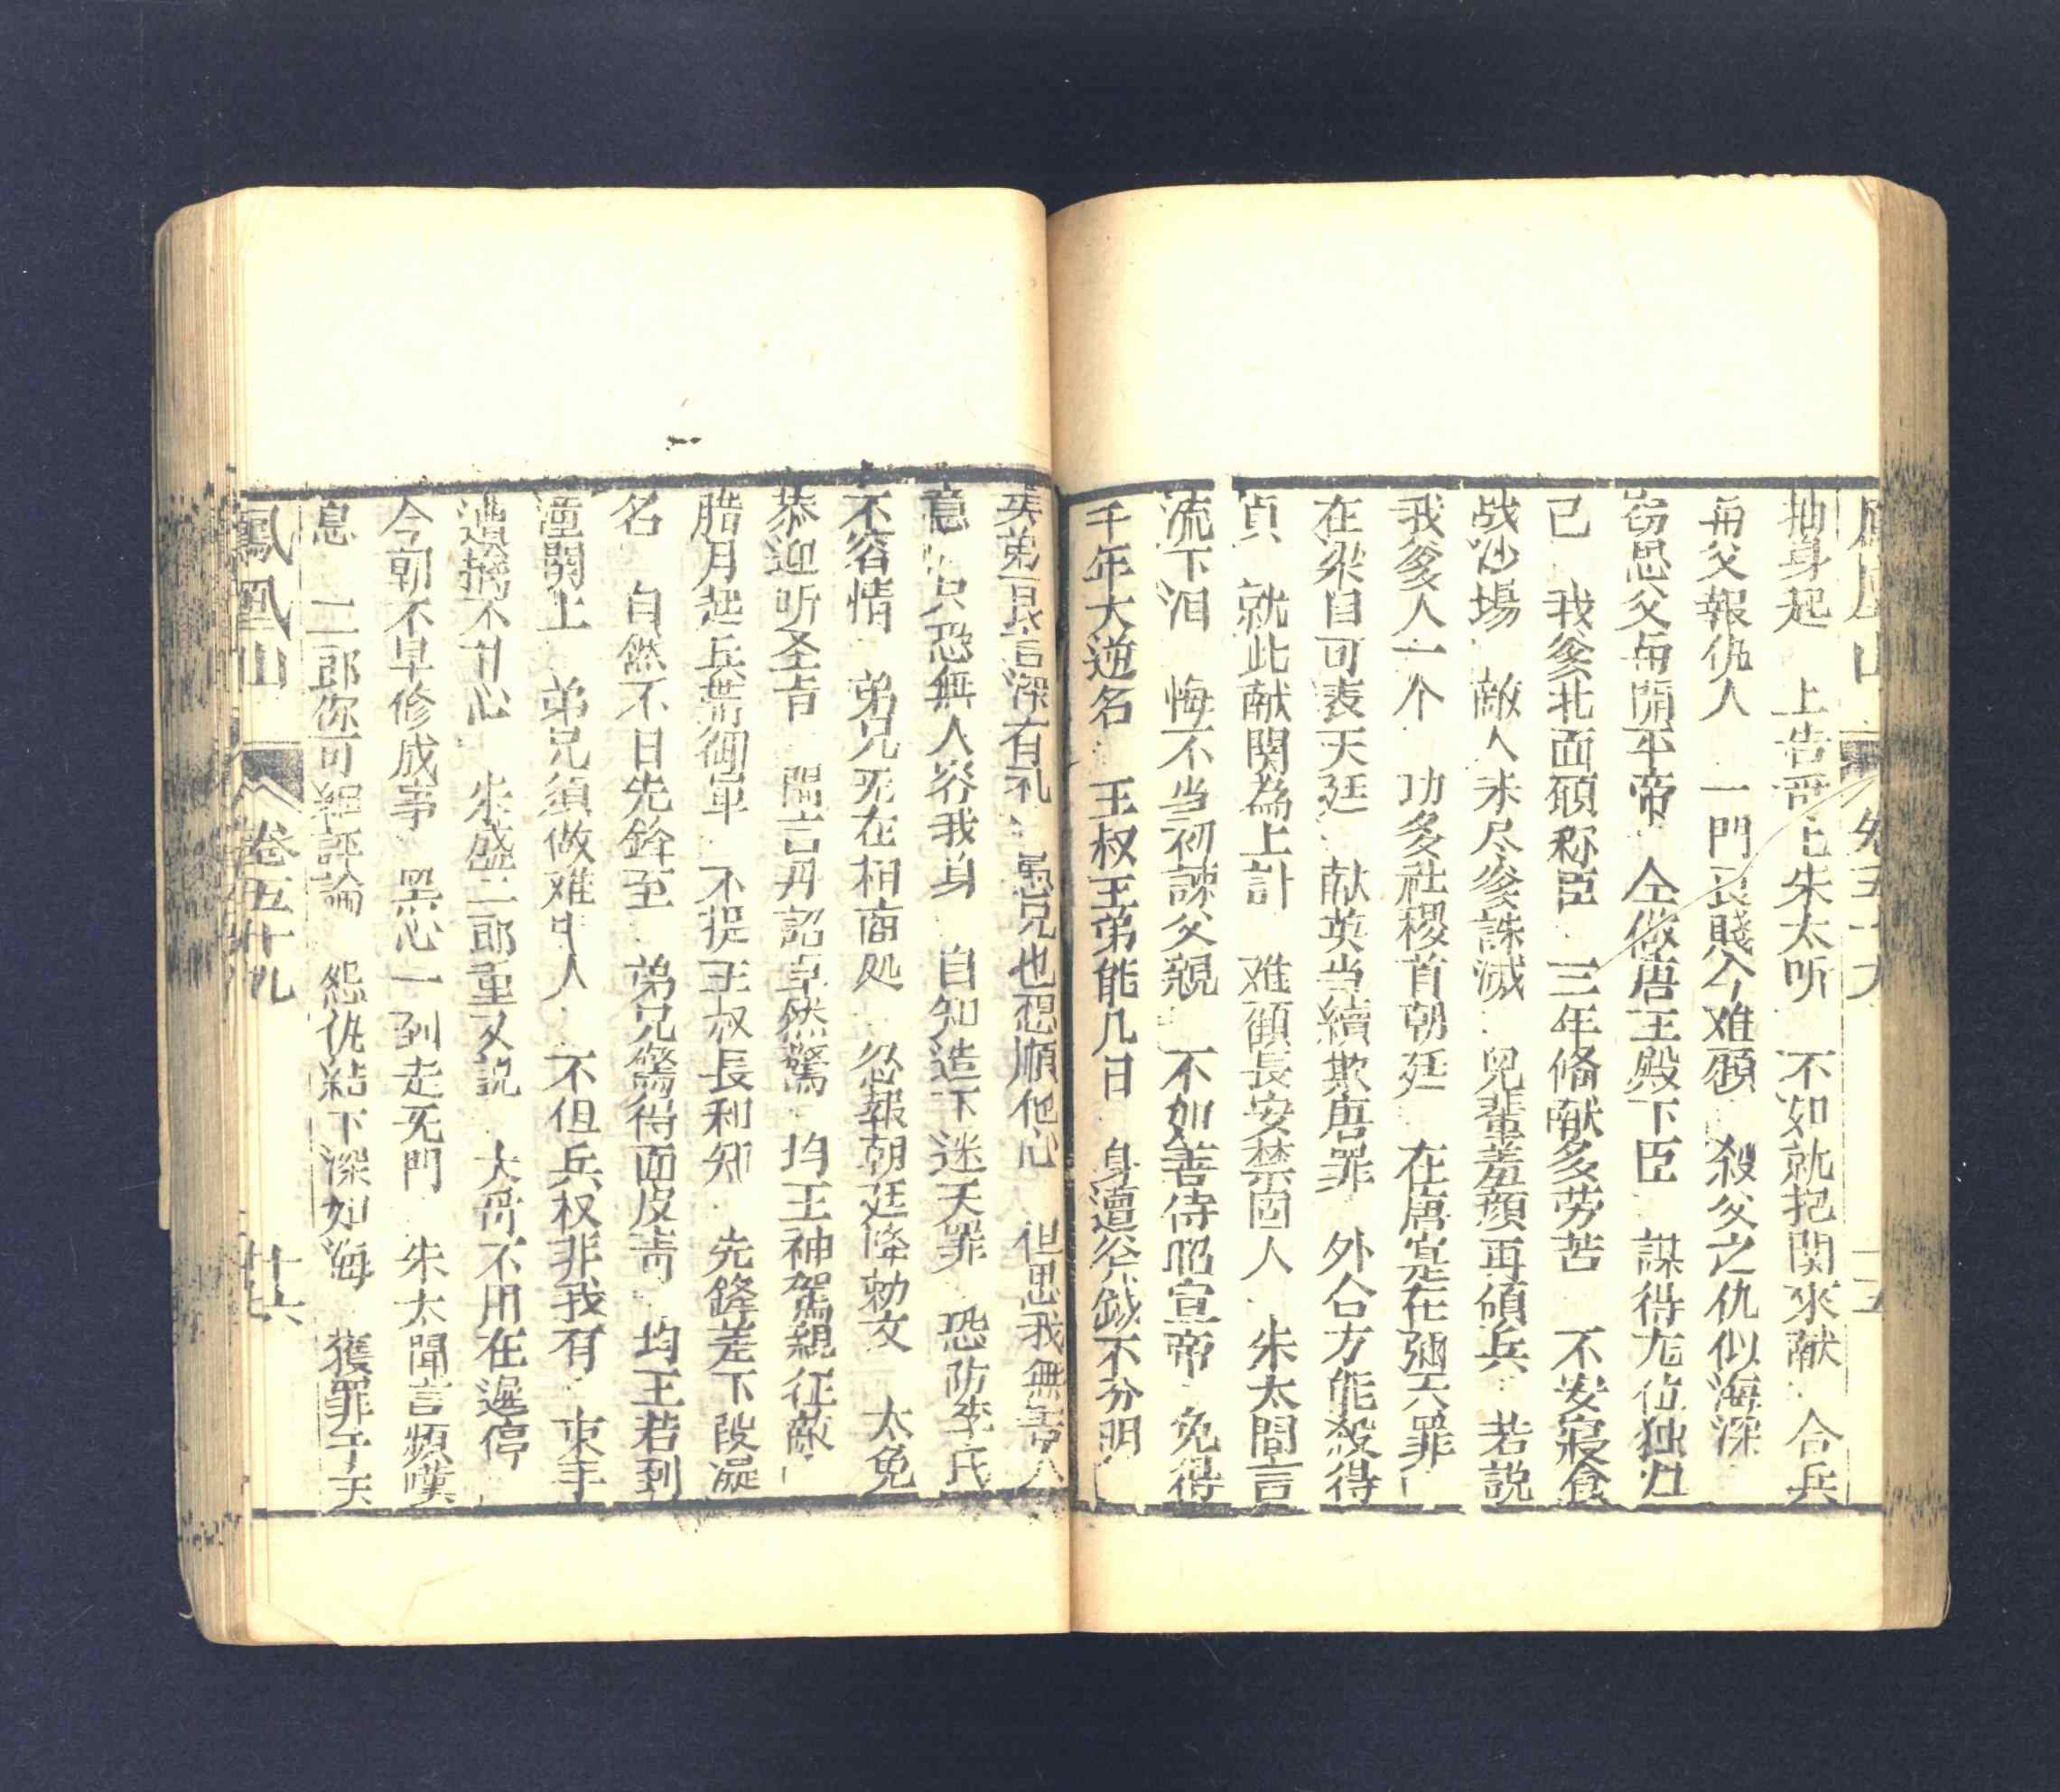 抽身起 上告哥匕朱太听 不如就把関來献 合兵
毋父報仇人 一門良賤今难顧 殺父之仇似海深
窃思父毋開平帝 仝做唐王殿下臣 謀得九位独力
己 我爹北面碩称臣 三年俻献多劳苦 不安寝食
战沙場 敵人未尽爹誅滅 兒輩羞顔再領兵 若説
我爹人一个 功多社稷首朝廷 在唐寔在弥天罪
在梁自可表天廷 献英当續欺唐罪 外合方能殺得
貞 就此献関為上計 难顧長安禁国人 朱太聞言
流下泪 悔不当初諫父親 不如善侍昭宣帝 免得
千年大逆名 王叔王弟能几日 身遭斧鉞不分明
矣弟一良言深有礼 愚兄也想順他心 但思我無
意 只恐無人容我身 自知造下迷天罪 恐防李氏
不容情 弟兄死在相商処 忽報朝廷降勅文 太免
恭迎听圣吉 聞言丹詔卓然驚 均王神駕親征敵
腊月起兵帶御軍 不捉王叔長利知 先鋒差下段凝
名 自然不日先鋒至 弟兄驚得面皮青 均王若到
潼関上 弟兄須做难中人 不但兵权非我有 束手
遭擒不甘心 朱盛二郎重又説 大哥不用在遲停
今朝不早修成事 黑心一到走死門 朱太聞言頻嘆
息 二郎你可細評論 怨仇結下深如海 獲罪于天
鳳凰山 卷五十九 十六